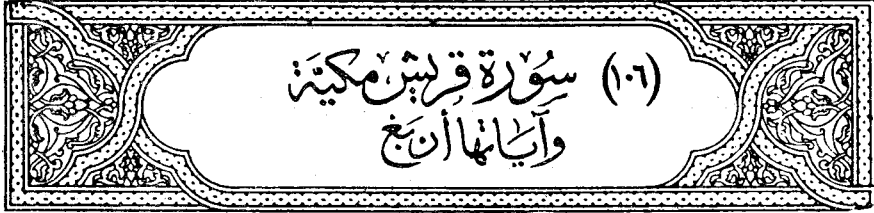 (١٠٦) سُورَة قُرَيْشٍ مَكِيَّة
وَآيَاتُهَا أَرْبَعٌ